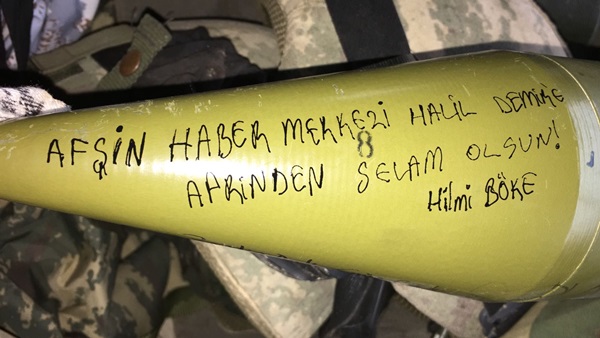 AFŞİN HABER MERKEZİ HALİL DEMİRE
8
AFRİNDEN SELAM OLSUN!
Hilmi BÖKE